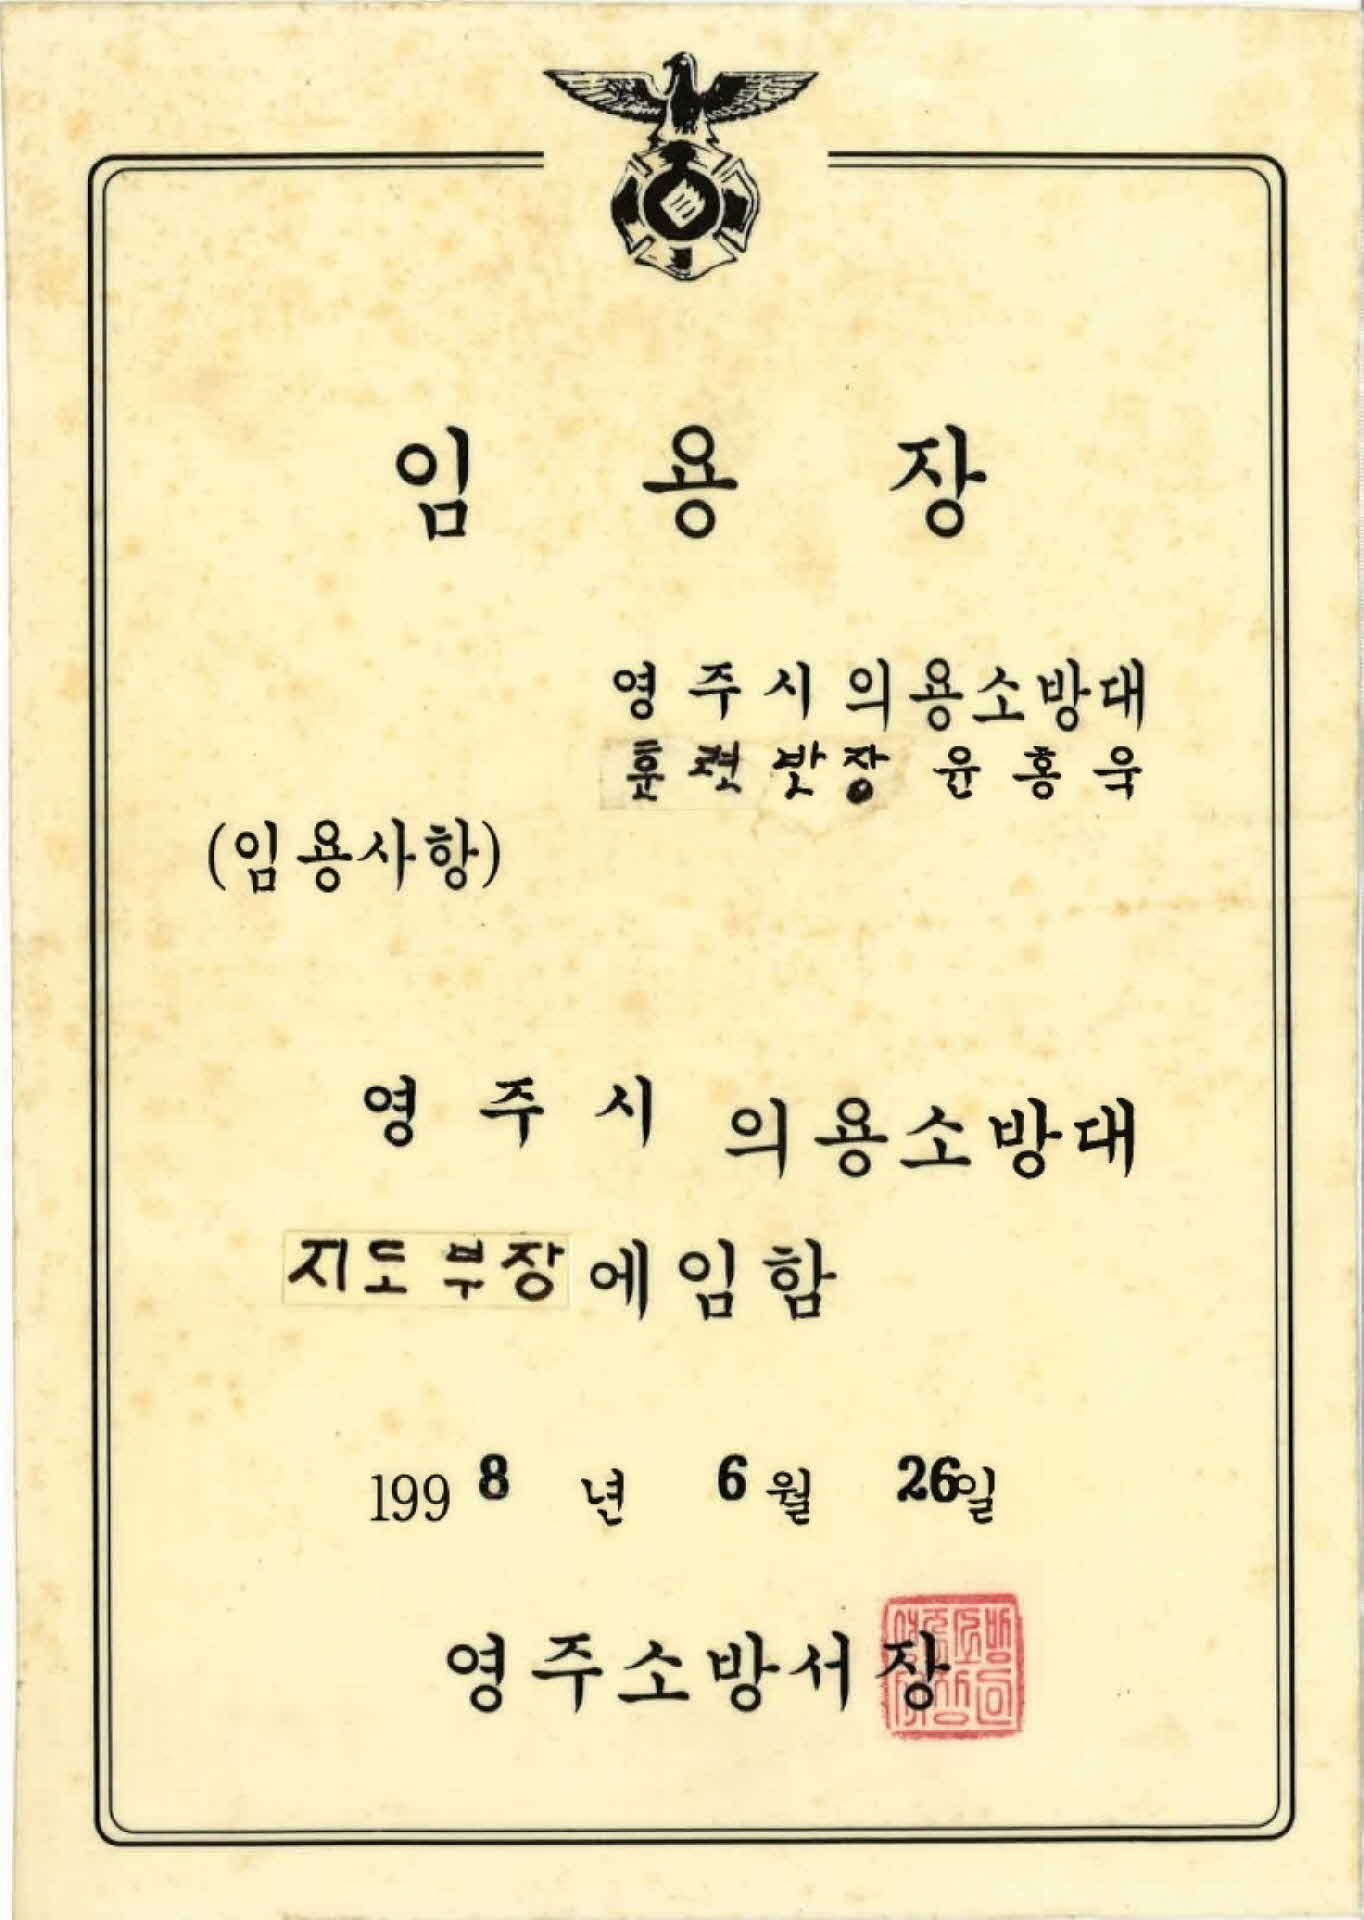 임 용 장
영 주 시 의용소방대
훈련반장 윤 홍 욱
(임용사항)
영 주 시 의용소방대
지도부장에임함
1998년 6월 26일
영주소방서장